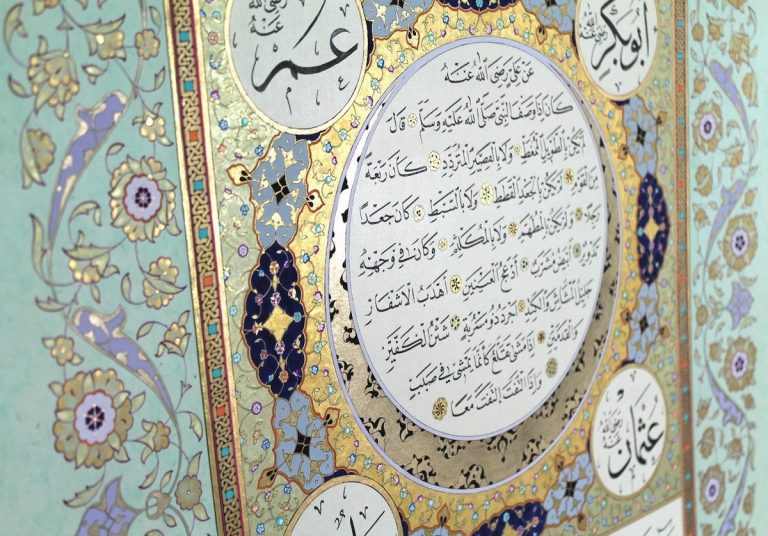 ابوبكر
رضي الله عنه
عمر
رضي الله عنه
عَنْ عَلِيٍّ رَضِيَ اللهُ عَنْهُ
كَانَ إِذَا وَصَفَ النَّبِيَّ صَلَّى اللهُ عَلَيْهِ وَسَلَّمَ قَالَ
لَمْ يَكُنْ بِالطَّوِيلِ الْمُمَغَّطِ وَلَا بِالْقَصِيرِ الْمُتَرَدِّدِ كَانَ رَبْعَةً
مِنَ الْقَوْمِ لَمْ يَكُنْ بِالْجَعْدِ الْقَطَطِ وَلَا بِالسَّبْطِ كَانَ جَعْدًا
رَجِلًا وَلَمْ يَكُنْ بِالْمُطَهَّمِ وَلَا بِالْمُكَلْثَمِ وَكَانَ فِي وَجْهِهِ
تَدْوِيرٌ أَبْيَضُ مُشْرَبٌ أَدْعَجُ الْعَيْنَيْنِ أَهْدَبُ الْأَشْفَارِ
جَلِيلُ الْمُشَاشِ وَالْكَتَدِ أَجْرَدُ ذُو مَسْرُبَةٍ شَثْنُ الْكَفَّيْنِ
وَالْقَدَمَيْنِ إِذَا مَشَى تَقَلَّعَ كَأَنَّمَا يَمْشِي فِي صَبَبٍ
وَإِذَا الْتَفَتَ الْتَفَتَ مَعًا
عثمان
رضي الله عنه